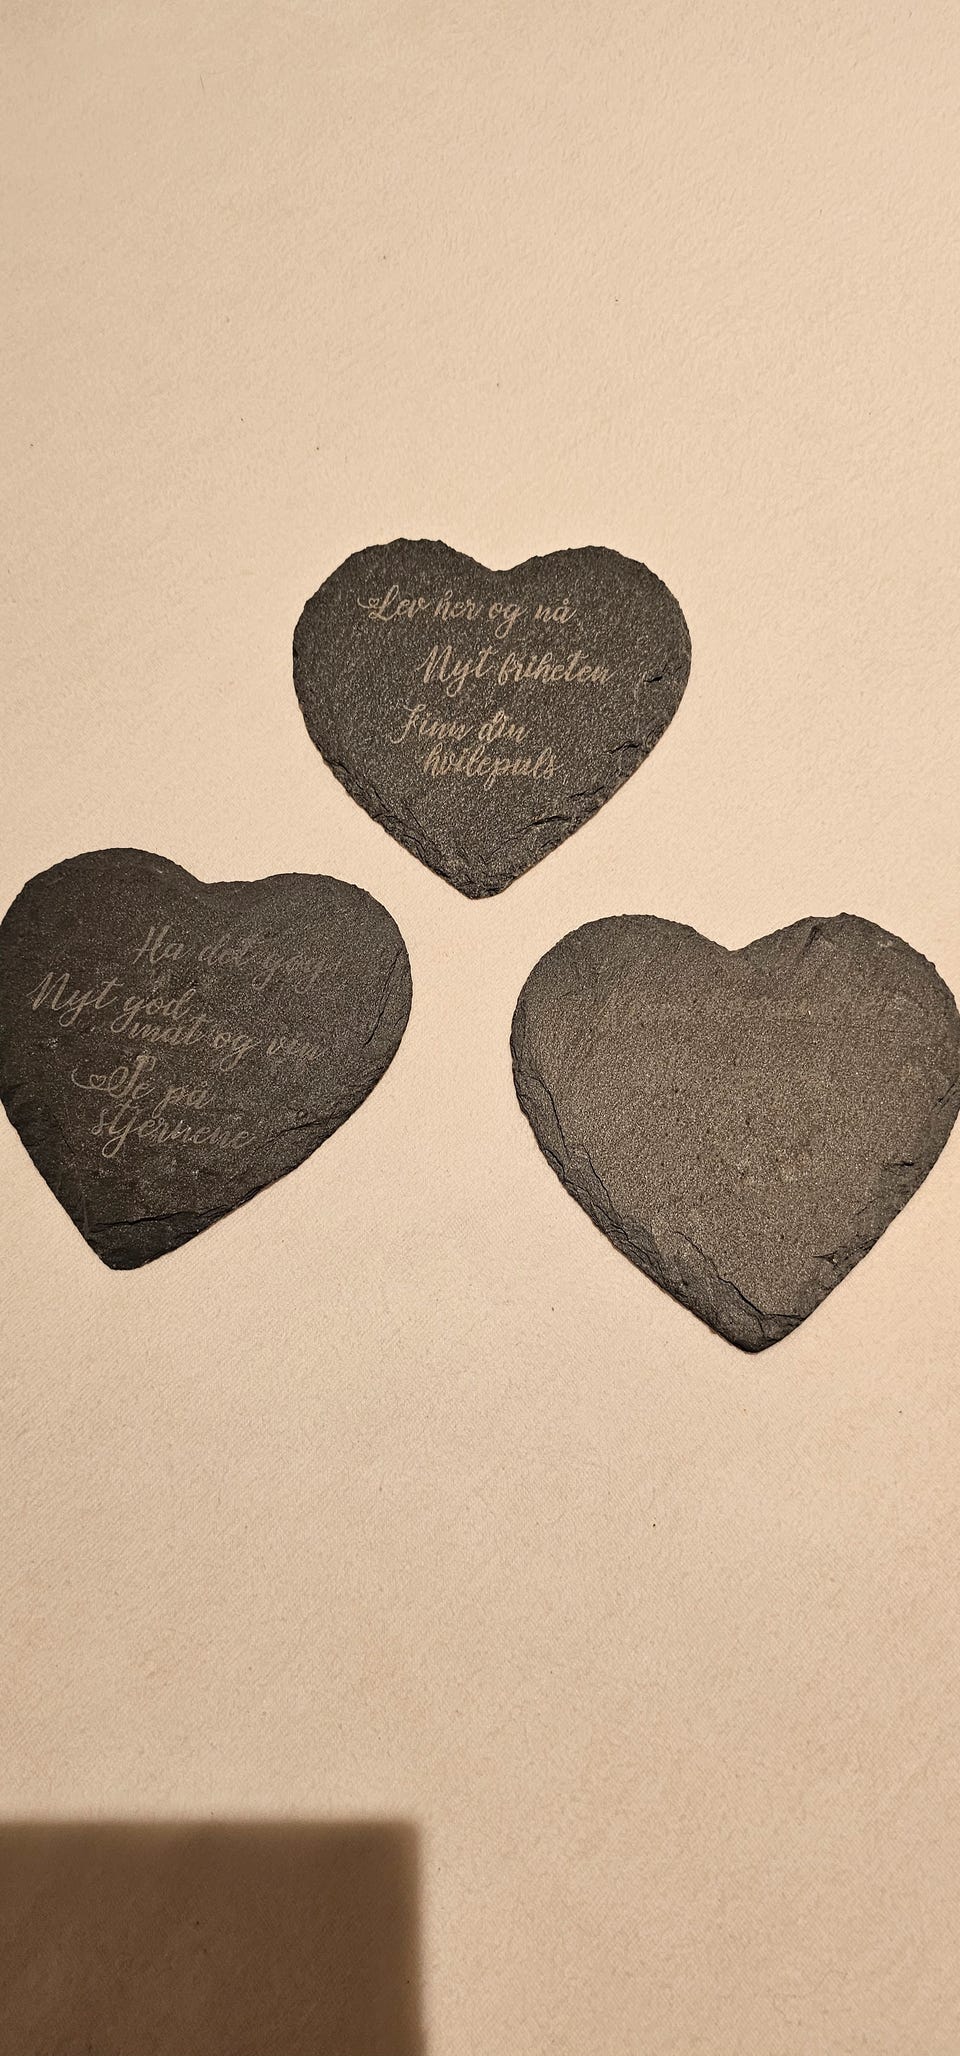 Lev her og nå
Nyt friheten
Finn din
hvilepuls
Ha det gøy
Nyt god
mat og vin
Se på
stjernene